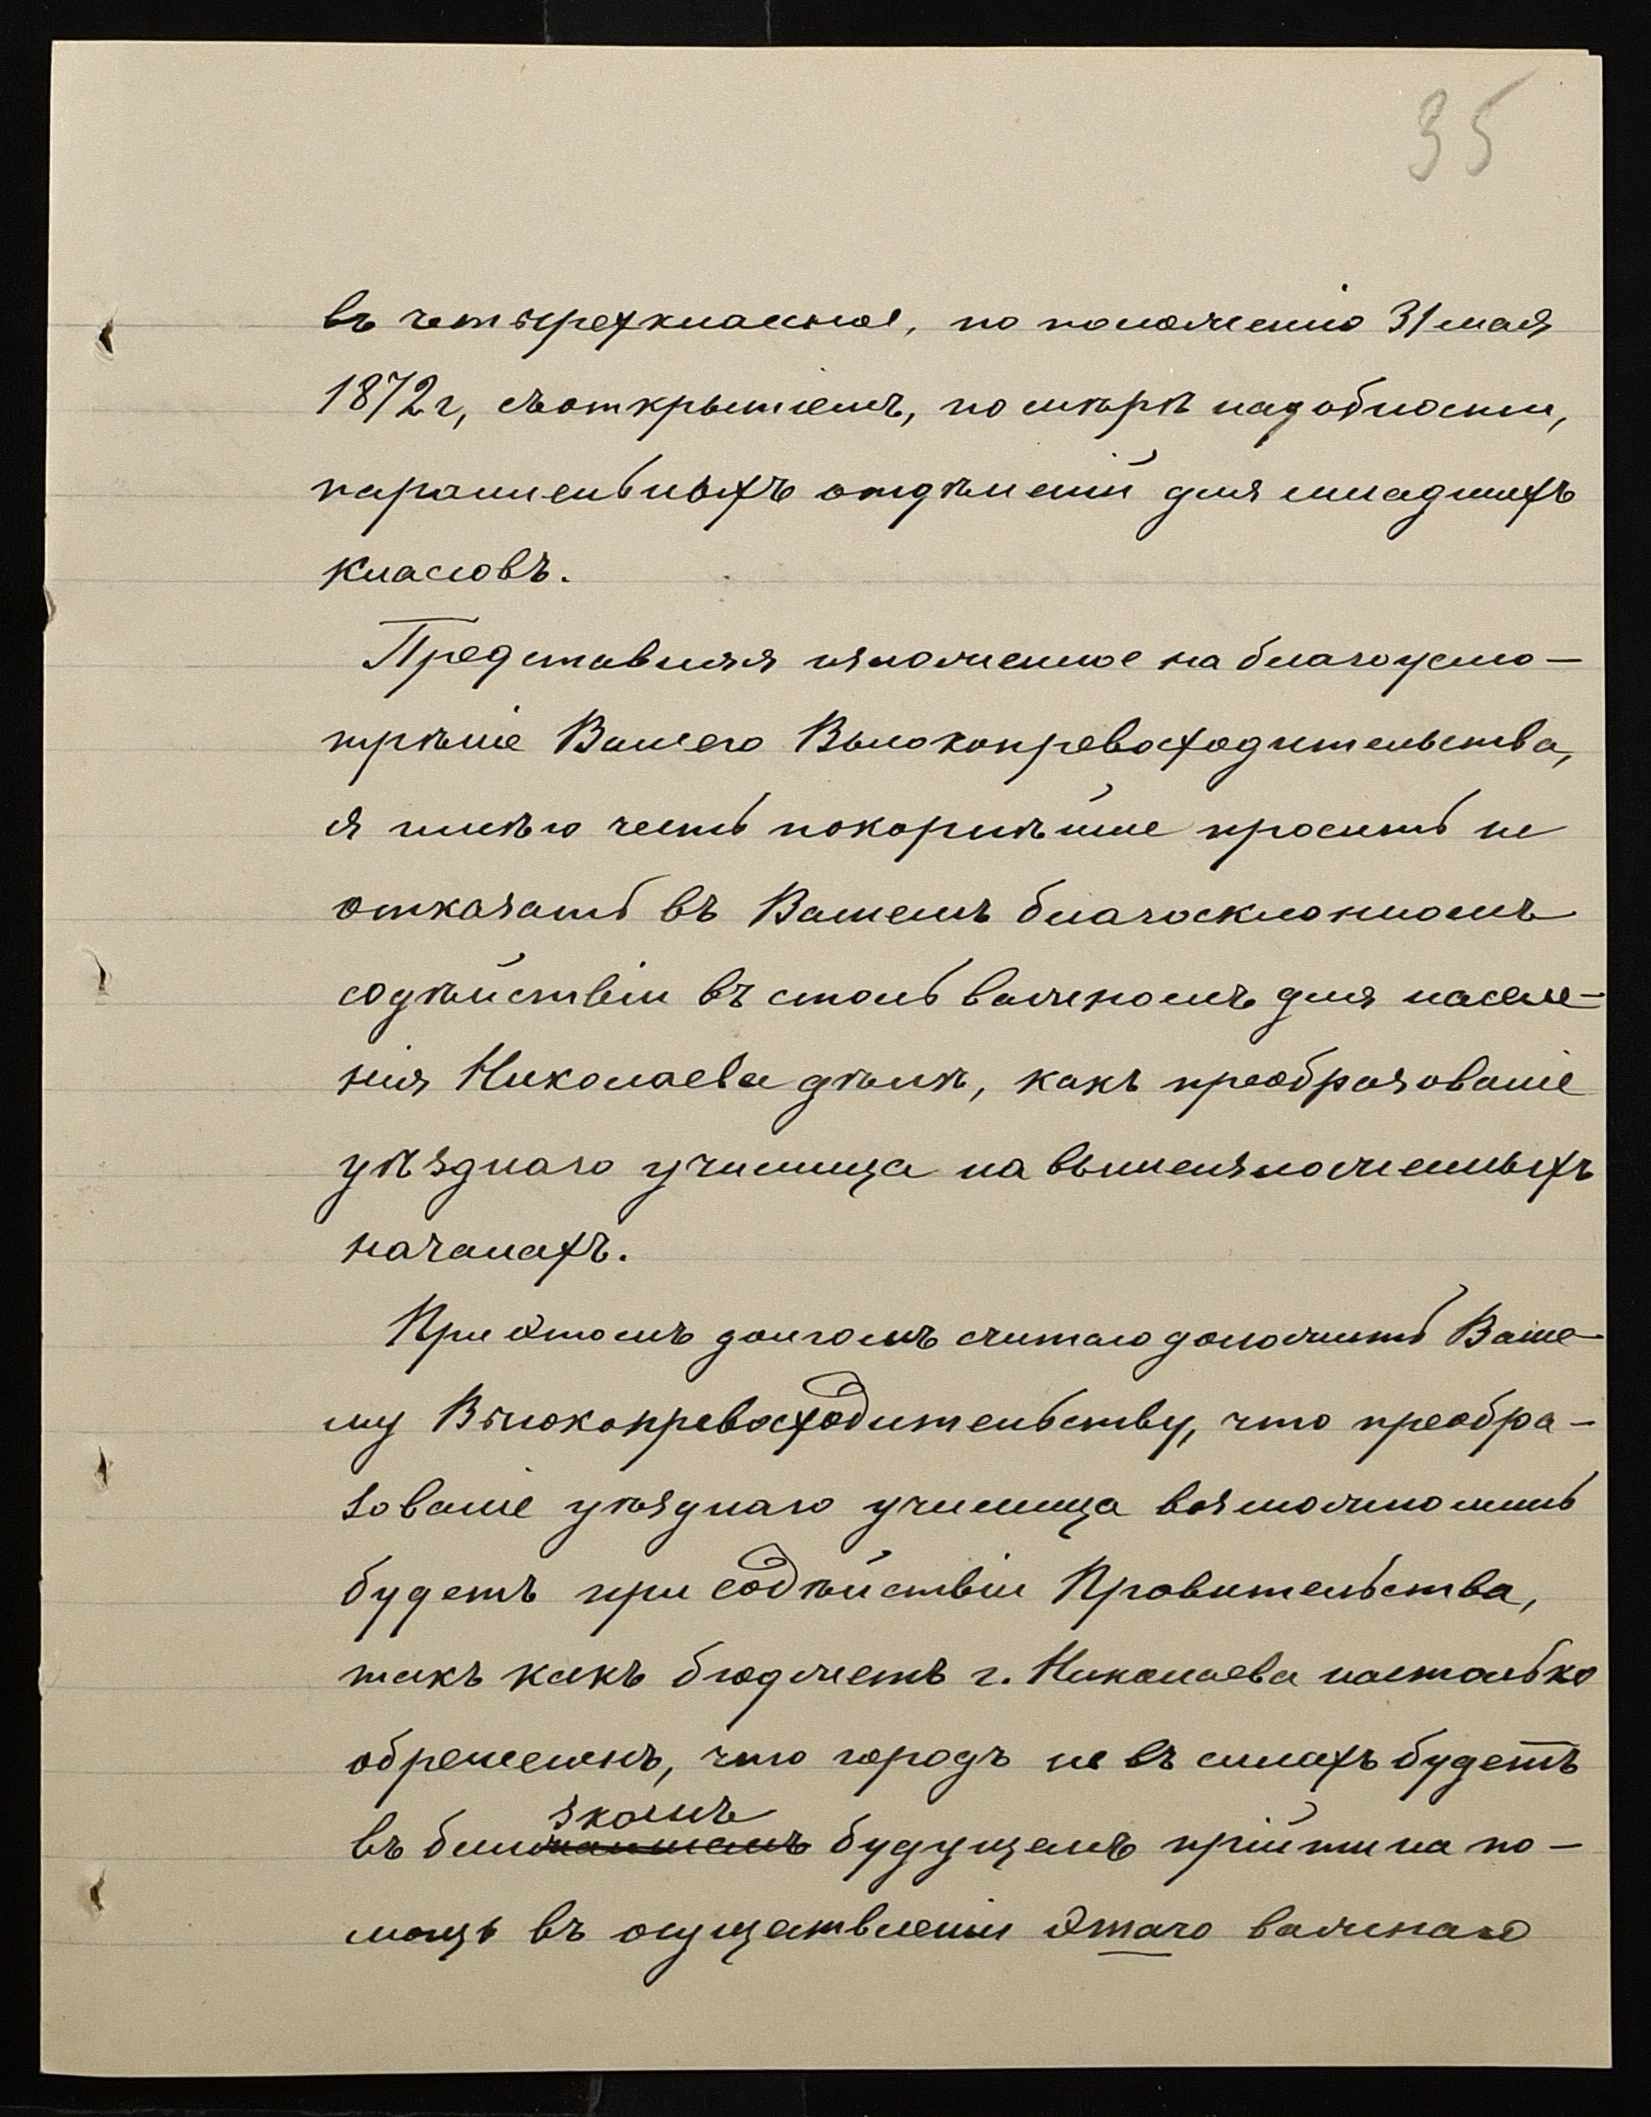 35
въ четырехклассное, по положенію 31 мая
1872 г, съ открытіемъ, по мѣрѣ надобности,
параллельныхъ отдѣленій для младшихъ
классовъ.
Представляя изложенное на благоусмо-
трѣніе Вашего Высокопревосходительства,
я имѣю честь покорнѣйше просить не
отказать въ Вашемъ благосклонномъ
содѣйствіи въ столь важномъ для населе-
нія Николаева дѣлѣ, какъ преобразованіе
уѣзднаго училища на вышеизложенныхъ
началахъ.
При этомъ долгомъ считаю доложить Ваше-
му Высокопревосходительству, что преобра-
зованіе уѣзднаго училища возможно лишь
будетъ при содѣйствіи Правительства,
такъ какъ бюджетъ г. Николаева настолько
обремененъ, что городъ не въ силахъ будетъ
зкомъ
въ бли будущемъ прійти на по-
мощь въ осуществленіи этого важнаго